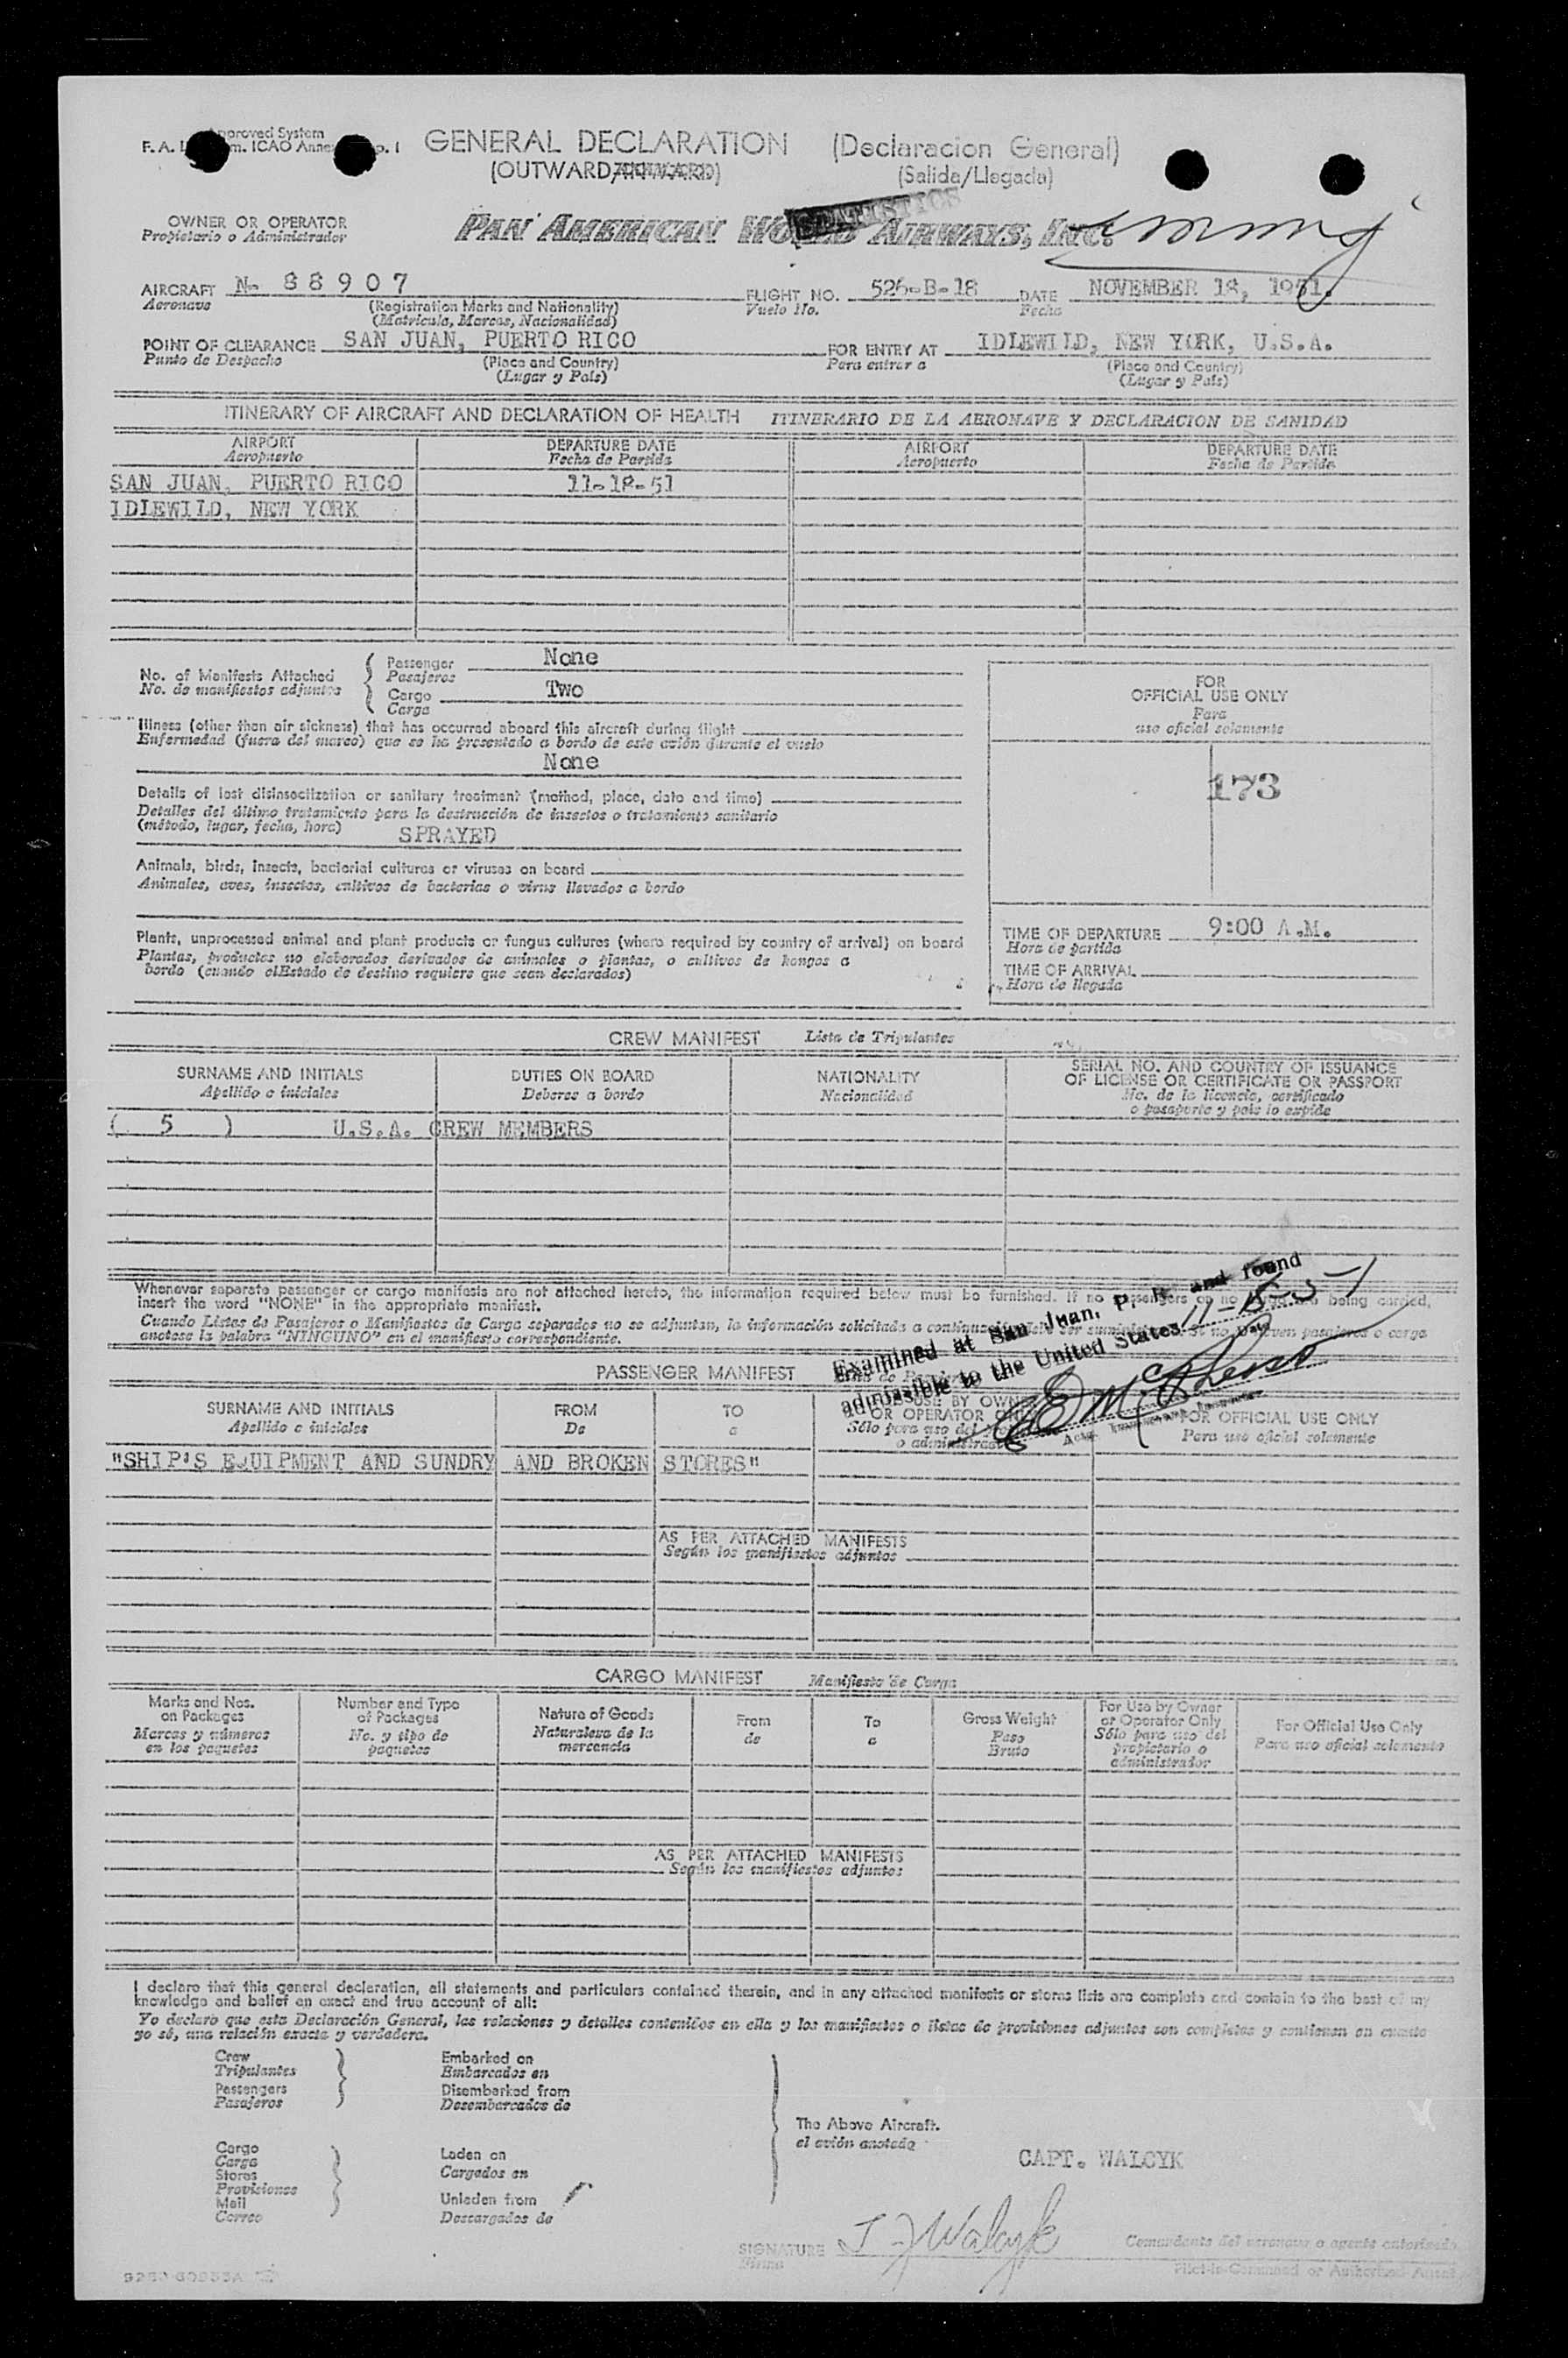 Approved System
F. A. L. m. ICAO Anne p. 1
GENERAL DECLARATION (Declaracion General)
(OUTWARD/INWARD) (Salida/Llegada)
STATISTICS
OWNER OR OPERATOR
Propietario o Administrador
PAN AMERICAN WORLD AIRWAYS, INC.
AIRCRAFT N- 88907 FLIGHT NO. 526-B-18 DATE NOVEMBER 18, 1951.
Aeronave (Registration Marks and Nationality) Vuelo No. Fecha
(Matricula, Marcas, Nacionalidad)
POINT OF CLEARANCE SAN JUAN, PUERTO RICO FOR ENTRY AT IDLEWILD, NEW YORK, U.S.A.
Punto de Despacho (Place and Country) Para entrar a (Place and Country)
(Lugar y País) (Lugar y País)
ITINERARY OF AIRCRAFT AND DECLARATION OF HEALTH ITINERARIO DE LA AERONAVE Y DECLARACION DE SANIDAD
AIRPORT DEPARTURE DATE AIRPORT DEPARTURE DATE
Aeropuerto Fecha de Partida Aeropuerto Fecha de Partida
SAN JUAN, PUERTO RICO 11-18-51
IDLEWILD, NEW YORK
No. of Manifests Attached
No. de manifiestos adjuntos
Passenger None
Pasajeros
Cargo Two
Carga
Illness (other than air sickness) that has occurred aboard this aircraft during flight
Enfermedad (fuera del mareo) que se ha presentado a bordo de este avión durante el vuelo
None
Details of last disinsectization or sanitary treatment (method, place, date and time)
Detalles del último tratamiento para la destrucción de insectos o tratamiento sanitario
(método, lugar, fecha, hora) SPRAYED
Animals, birds, insects, bacterial cultures or viruses on board
Animales, aves, insectos, cultivos de bacterias o virus llevados a bordo
Plants, unprocessed animal and plant products or fungus cultures (where required by country of arrival) on board
Plantas, productos no elaborados derivados de animales o plantas, o cultivos de hongos a
bordo (cuando elEstado de destino requiere que sean declarados)
FOR
OFFICIAL USE ONLY
Para
uso oficial solamente
173
TIME OF DEPARTURE 9:00 A.M.
Hora de partida
TIME OF ARRIVAL
Hora de llegada
CREW MANIFEST Lista de Tripulantes
SURNAME AND INITIALS DUTIES ON BOARD NATIONALITY SERIAL NO. AND COUNTRY OF ISSUANCE
OF LICENSE OR CERTIFICATE OR PASSPORT
Apellido e iniciales Deberes a bordo Nacionalidad No. de la licencia, certificado
o pasaporte y pais lo expide
( 5 ) U.S.A. CREW MEMBERS
Whenever separate passenger or cargo manifests are not attached hereto, the information required below must be furnished. If no passengers or no being carried,
insert the word "NONE" in the appropriate manifest.
Cuando Listas de Pasajeros o Manifiestos de Carga separados no se adjuntan, la información solicitada a pasajeros o carga
anotese la palabra "NINGUNO" en el manifiesto correspondiente.
Examined at San Juan, P. R. and found
admissible to the United States 11-18-51
Date
PASSENGER MANIFEST
SURNAME AND INITIALS FROM TO FOR USE BY OWNER
OR OPERATOR ONLY FOR OFFICIAL USE ONLY
Apellido e iniciales De a Sólo para uso del
o administrador Para uso oficial solamente
"SHIP'S EQUIPMENT AND SUNDRY AND BROKEN STORES"
AS PER ATTACHED MANIFESTS
Según los manifiestos adjuntos
CARGO MANIFEST Manifiesto de Carga
Marks and Nos.
on Packages
Marcas y números
en los paquetes
Number and Type
of Packages
No. y tipo de
paquetes
Nature of Goods
Naturaleza de la
mercancia
From
de
To
a
Gross Weight
Peso
Bruto
For Use by Owner
or Operator Only
Sólo para uso del
propietario o
administrador
For Official Use Only
Para uso oficial solamente
AS PER ATTACHED MANIFESTS
Según los manifiestos adjuntos
I declare that this general declaration, all statements and particulars contained therein, and in any attached manifests or stores lists are complete and contain to the best of my
knowledge and belief an exact and true account of all:
Yo declaro que esta Declaración General, las relaciones y detalles contenidos en ella y los manifiestos o listas de provisiones adjuntos son completas y contienen en cuanto
yo sé, una relación exacta y verdadera.
Crew
Tripulantes
Passengers
Pasajeros
Embarked on
Embarcados en
Disembarked from
Desembarcados de
Cargo
Carga
Stores
Provisiones
Mail
Correo
Laden on
Cargados en
Unladen from
Descargados de
The Above Aircraft.
el avión anotado
CAPT. WALCYK
SIGNATURE Walcyk
Firma
Comandante del aeronave o agente autorizado
Pilot-in-Command or Authorized Agent